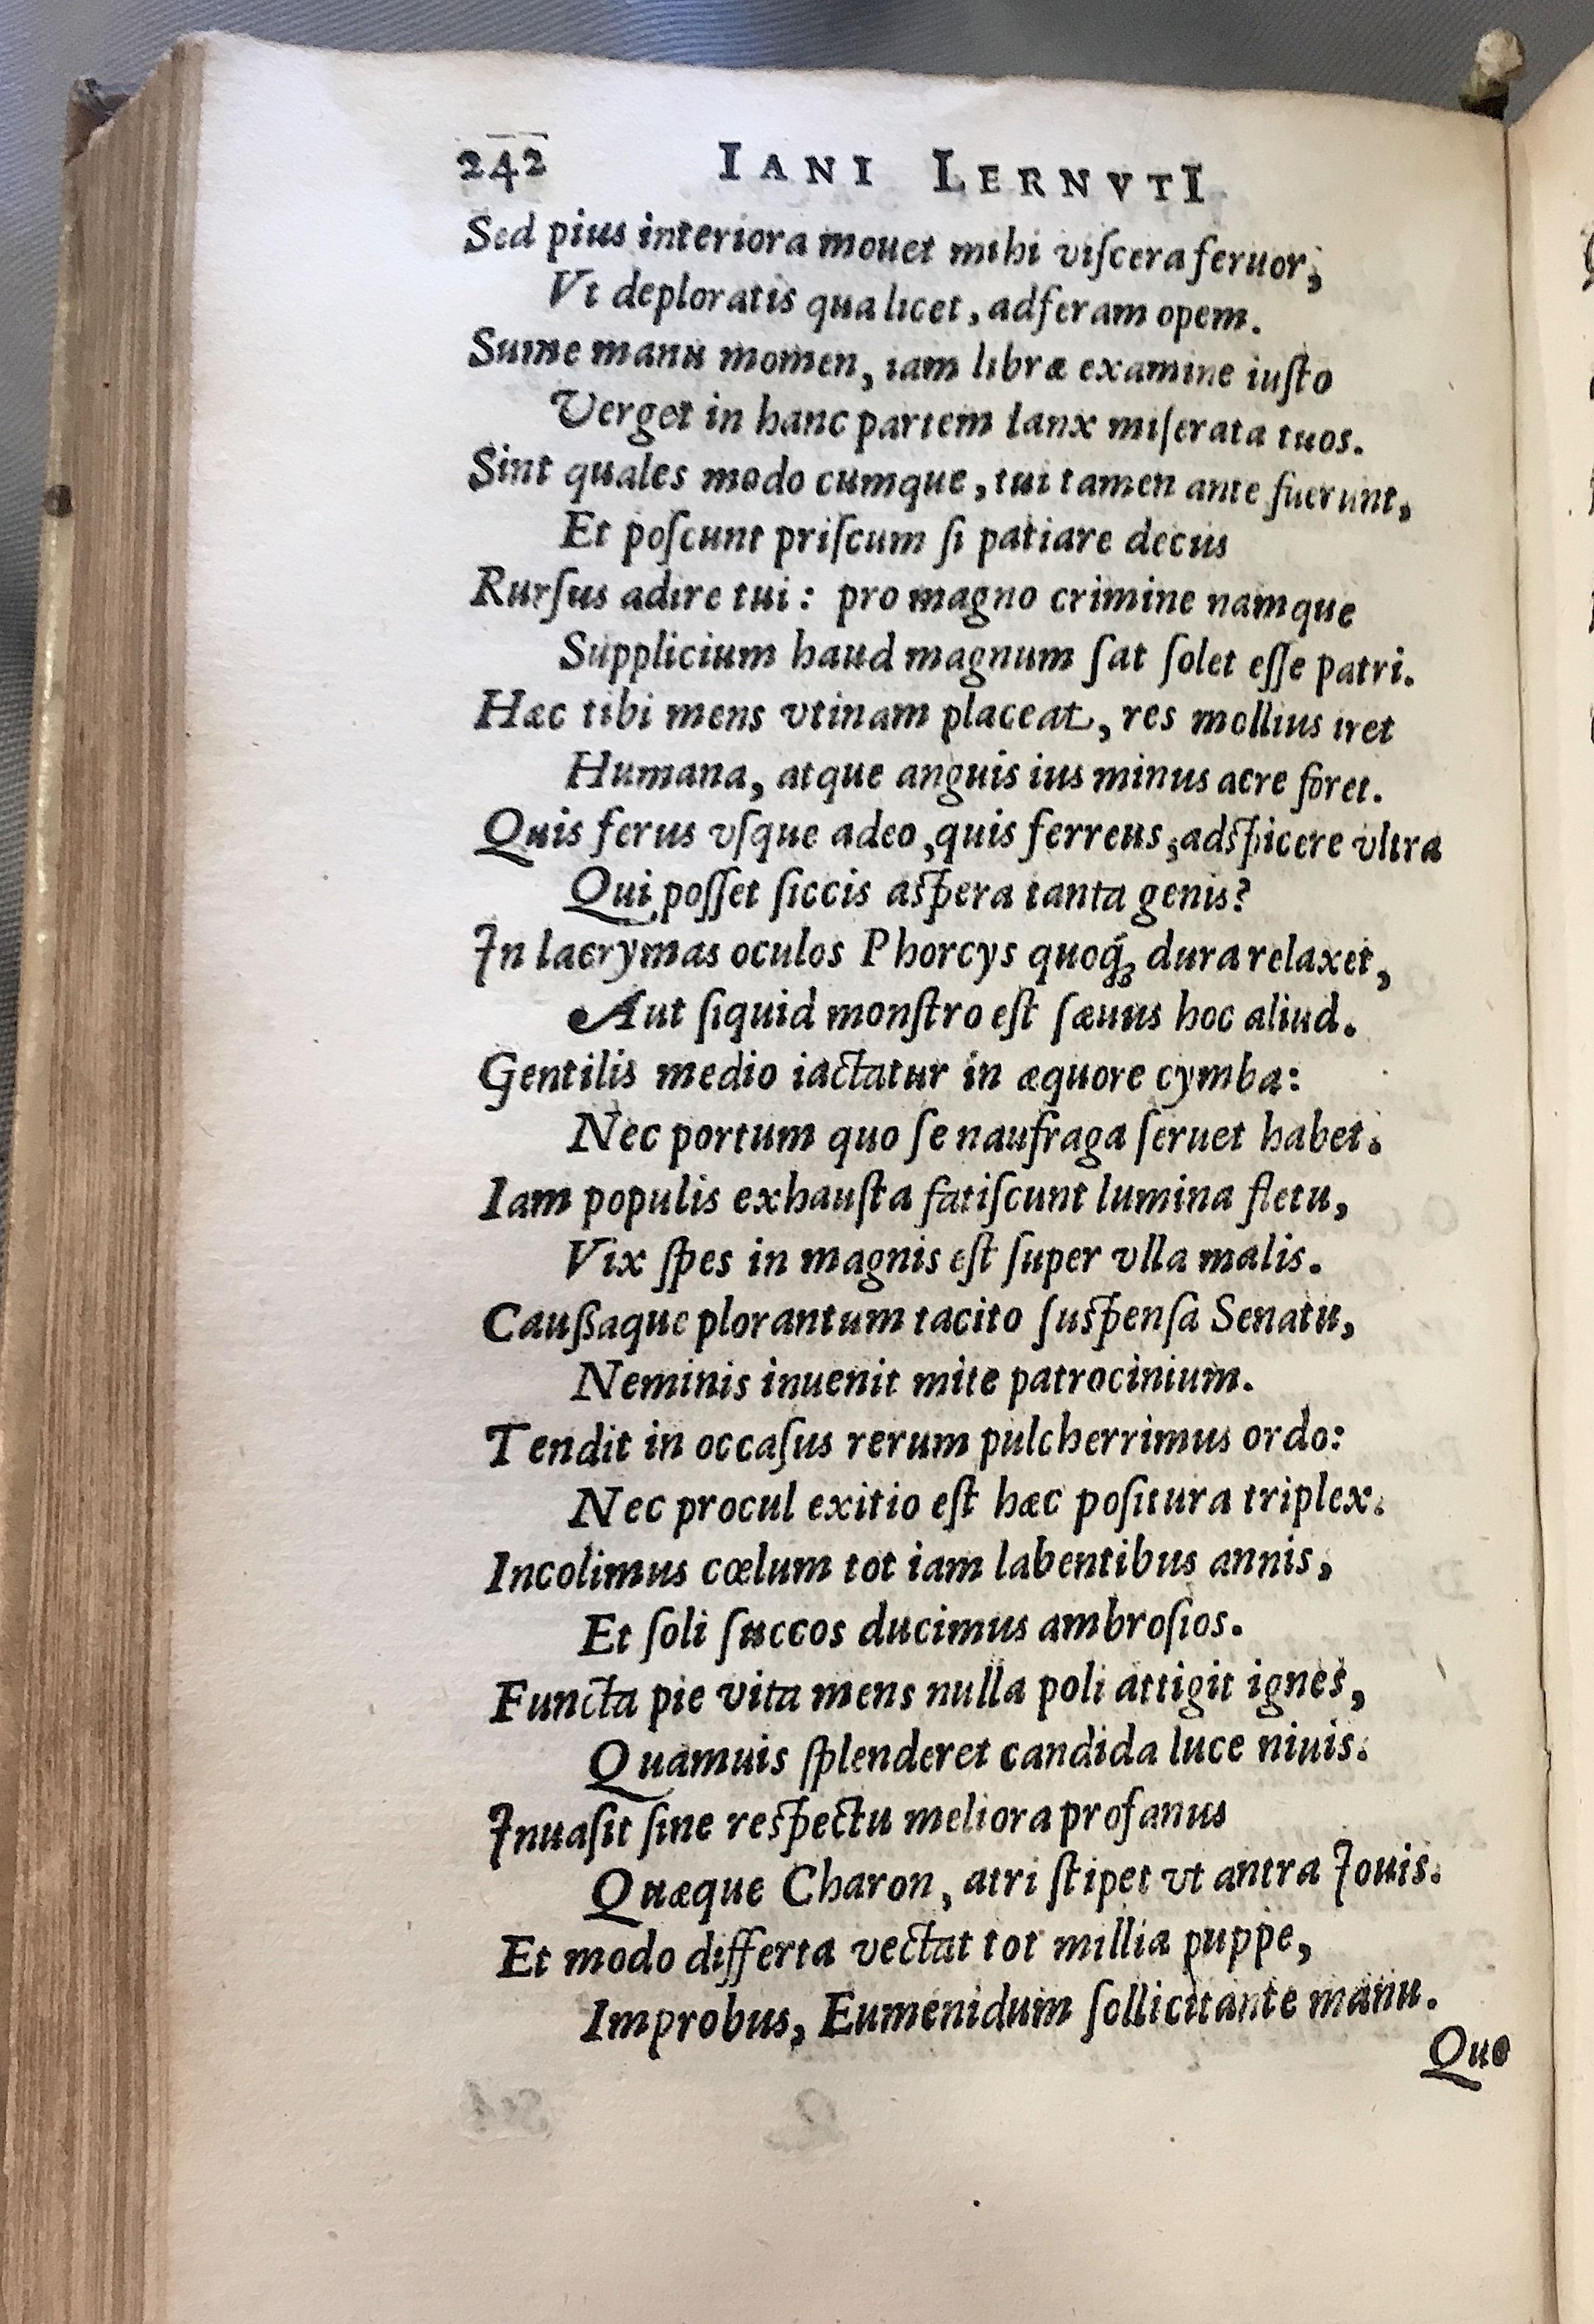 242 IANI LERNVTI
Sed pius interiora mouet mihi viſcera feruor;
Vt deploratis qua licet, adferam opem.
Sume manu momen, iam libræ examine iuſto
Verget in hanc partem lanx miſerata tuos.
Sint quales modo cumque, tui tamen ante fuerunt,
Et poſcunt priſcum ſi patiare decus
Rurſus adire tui: pro magno crimine namque
Supplicium haud magnum ſat ſolet eſſe patri.
Hæc tibi mens vtinam placeat, res mollius iret
Humana, atque anguis ius minus acre foret.
Quis ferus vſque adeo, quis ferreus, adſpicere vltra
Qui poſſet ſiccis aſpera tanta genis?
In lacrymas oculos Phorcys quoq́; dura relaxet,
Aut ſiquid monſtro eſt ſæuus hoc aliud.
Gentilis medio iactatur in æquore cymba:
Nec portum quo ſe naufraga ſeruet habet.
Iam populis exhauſta fatiſcunt lumina fletu,
Vix ſpes in magnis eſt ſuper vlla malis.
Caußaque plorantum tacito ſuſpenſa Senatu,
Neminis inuenit mite patrocinium.
Tendit in occaſus rerum pulcherrimus ordo:
Nec procul exitio eſt hæc poſitura triplex.
Incolimus cœlum tot iam labentibus annis,
Et ſoli ſuccos ducimus ambroſios.
Functa pie vita mens nulla poli attigit ignes,
Quamuis ſplenderet candida luce niuis.
Inuaſit ſine reſpectu meliora profanus
Quæque Charon, atri ſtipet vt antra Iouis.
Et modo differta vectat tot millia puppe,
Improbus, Eumenidum ſollicitante manu.
Quo